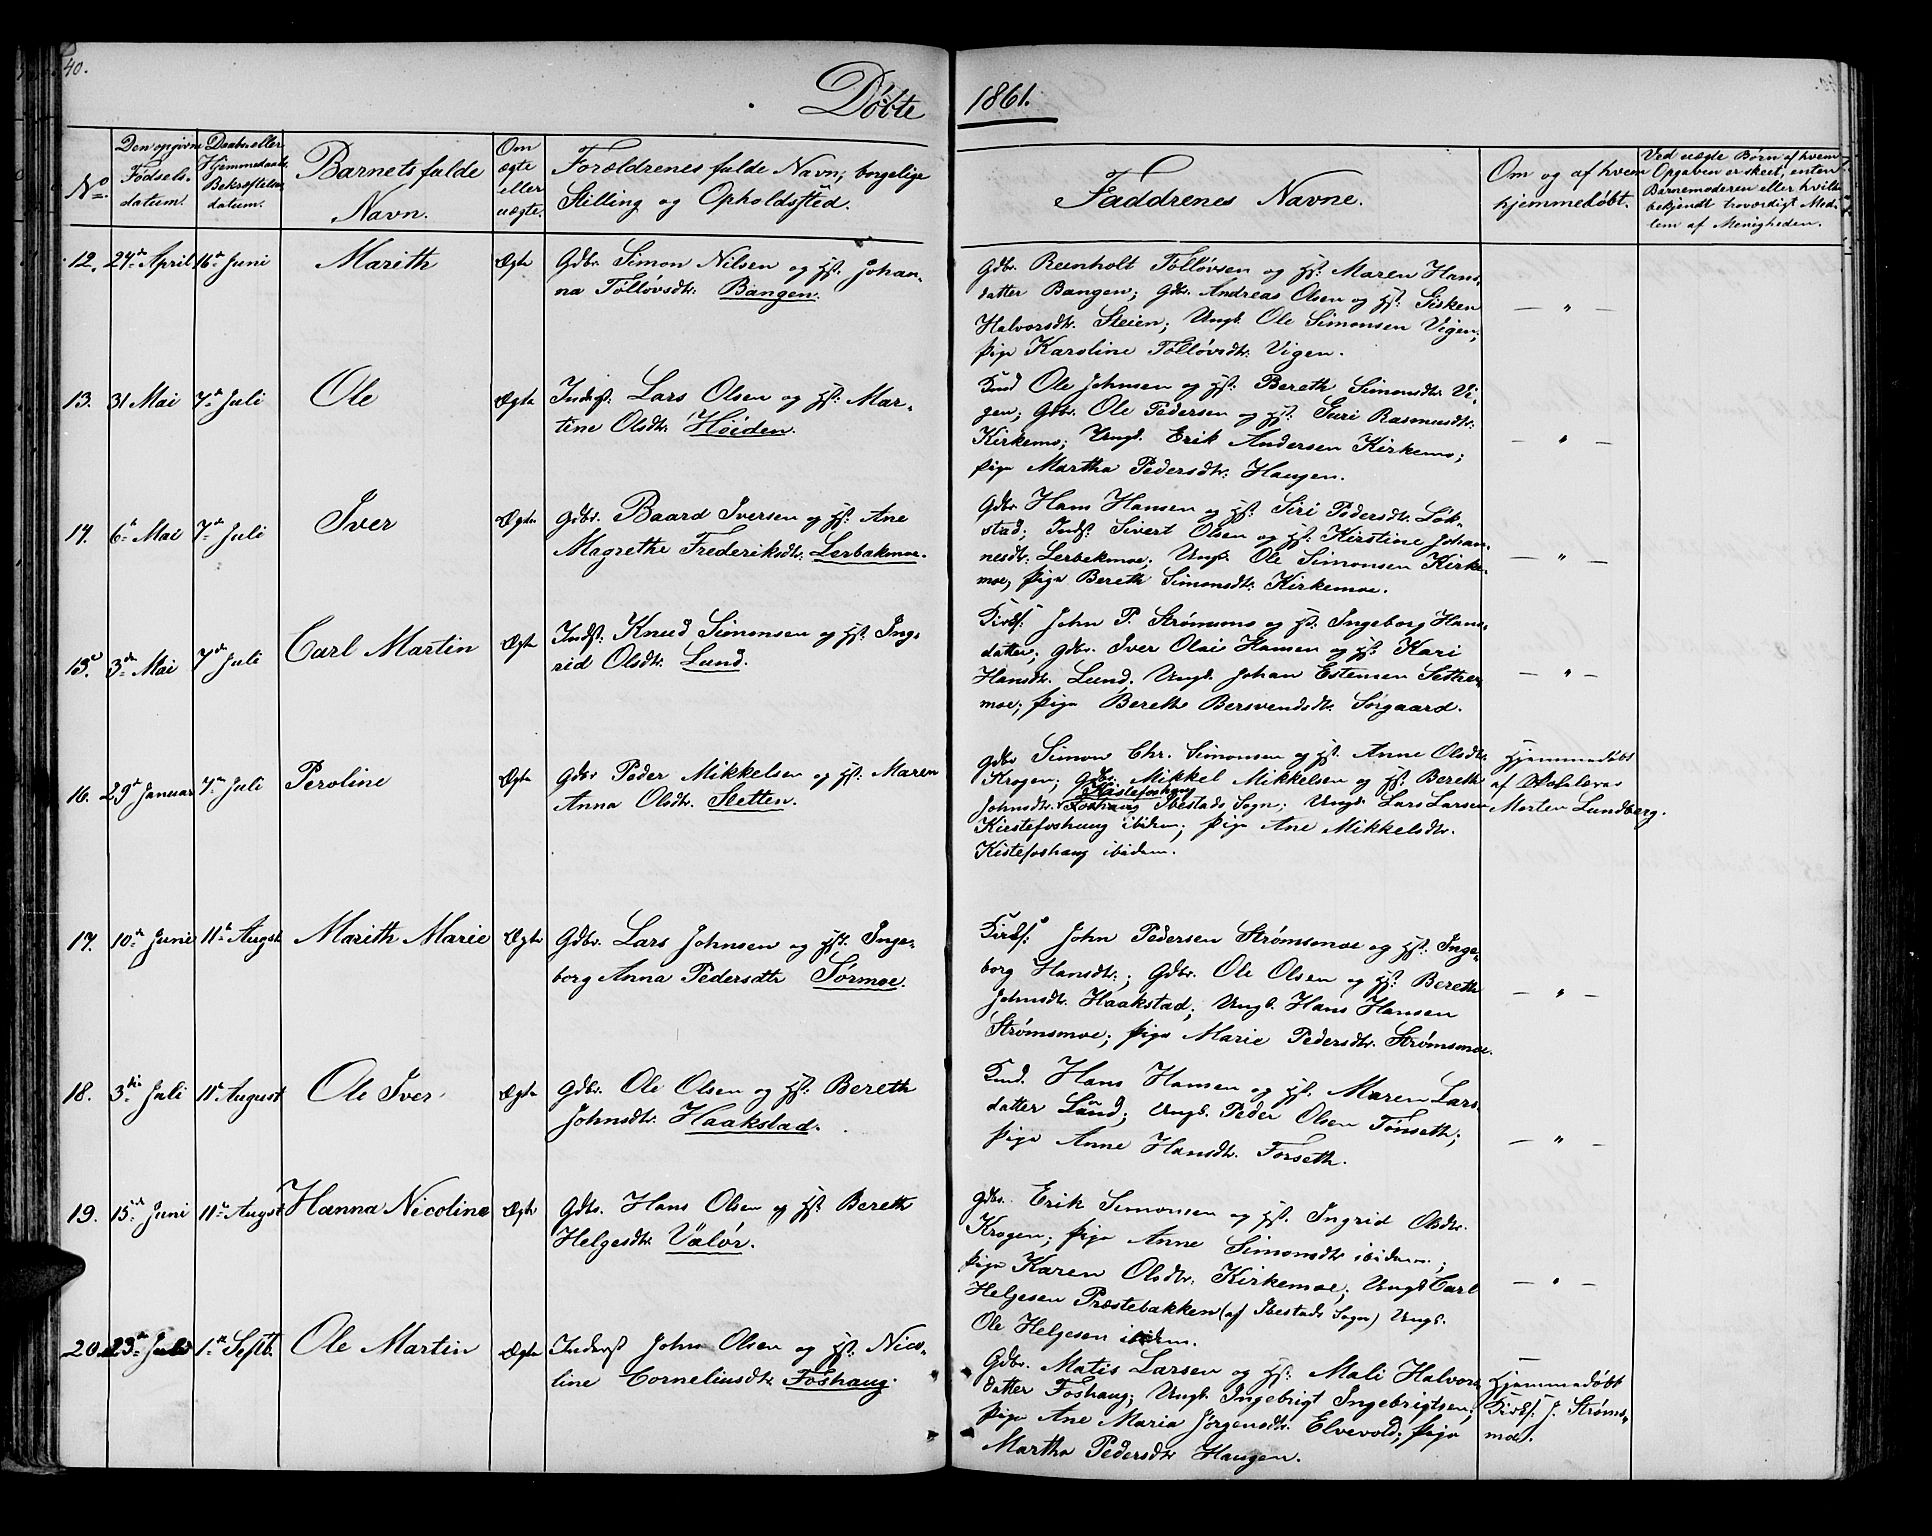 40.
Døbte 1861.
No.
Den opgivne Fødsels-datum.
Daabs eller Hjemmedaabs Bekræftelses datum.
Barnets fulde Navn.
Om ægte eller uægte.
Forældrenes fulde Navn, borgelige Stilling og Opholdssted.
Faddrenes Navne.
Om og af hvem hjemmedøbt.
Ved uægte Børn af hvem Opgaven er skeet, enten Barnemoderen eller hvilke bekjendt troværdigt Medlem af Menigheden.
12. 24de April 16de Juni Marith Ægte Gdbr. Simon Nilsen og Hst. Johan-
na Tølløvsdtr. Bangen.
Gdbr. Reenholt Tølløvsen og Hst. Maren Hans-
datter Bangen; Gdbr. Andreas Olsen og Hst. Sisken
Halvorsdtr. Steien; Ungk. Ole Simonsen Vigen;
Pige Karoline Tølløvsdtr. Vigen.
— " —
13. 31 Mai 7de Juli Ole Ægte Inderst. Lars Olsen og Hst. Mar-
tine Olsdtr. Høiden.
Ole Johnsen og Hst. Bereth Simonsdtr. Vi-
gen; Gdbr. Ole Pedersen og Hst. Guri Rasmusdtr.
Kirkemo; Ungk. Erik Andersen Kirkemo;
Pige Martha Pedersdtr. Haugen.
— " —
14. 6te Mai 7de Juli Iver Ægte Gdbr. Baard Iversen og Hst. Ane
Magrethe Frederiksdtr. Lerbakmoe.
Gdbr. Hans Hansen og Hst. Siri Pedersdtr. Løk-
stad; Indst. Sivert Olsen og Hst. Kirstine Johan-
nesdtr. Lerbekmoe; Ungk. Ole Simonsen Kirke-
moe, Pige Bereth Simonsdtr. Kirkemoe.
— " —
15. 3de Mai 7de Juli Carl Martin Ægte Indst. Knud Simonsen og Hst. Ing-
rid Olsdtr. Lund.
Kirkes. John P. Strømsmo og Hst. Ingeborg Hans-
datter; Gdbr. Iver Olai Hansen og Hst. Kari
Hansdtr. Lund. Ungk. Johan Estensen Sether-
moe; Pige Bereth Bersvendsdtr. Sørgaard.
— " —
16. 29de Januar 7de Juli Peroline Ægte Gdbr. Peder Mikkelsen og Hst. Maren
Anna Olsdtr. Sletten.
Gdbr. Simon Chr. Simonsen og Hst. Anne Olsdtr.
Krogen; Gdbr. Mikkel Mikkelsen og Hst. Bereth
Kistefoshaug
Johnsdtr. Foshaug Ibestads Sogn; Ungk. Lars Larsen
Kistefoshaug ibidem; Pige Ane Mikkelsdtr.
Kistefoshaug ibidem.
Hjemmedøbt
af
Morten Lundberg.
17. 10de Juni 11te Augst. Marith Marie Ægte Gdbr. Lars Johnsen og Hst. Inge-
borg Anna Pedersdtr. Sørmoe.
Kirkes. John Pedersen Strømsmoe og Hst. Inge-
borg Hansdtr.; Gdbr. Ole Olsen og Hst. Bereth
Johnsdtr. Haakstad; Ungk. Hans Hansen
Strømsmoe; Pige Marie Pedersdtr. Strømsmoe.
— " —
18. 3die Juli 11te August Ole Iver Ægte Gdbr. Ole Olsen og Hst. Bereth
Johnsdtr. Haakstad.
Hans Hansen og Hst. Maren Lars-
datter Lund; Ungk. Peder Olsen Tønseth;
Pige Anne Hansdtr. Forseth.
— " —
19. 15de Juni 11te Augst Hanna Nicoline Ægte Gdbr. Hans Olsen og Hst. Bereth
Helgesdtr. Valør.
Gdbr. Erik Simonsen og Hst. Ingrid Olsdtr.
Krogen; Pige Anne Simonsdtr ibidem;
Pige Karen Olsdtr. Kirkemoe; Ungk Carl
Helgesen Præstebakken (af Ibestads Sogn) Ungk.
Ole Helgesen ibidem.
— " —
20. 23de Juli 1ste Septb. Ole Martin Ægte Inderst John Olsen og Hst. Nico-
line Corneliusdtr. Foshaug.
Gdbr. Matis Larsen og Hst. Mali Halvors-
datter Foshaug; Ungk. Ingebrigt Ingebrigtsen;
Pige Ane Maria Jørgensdtr. Elvevold; Pige
Martha Pedersdtr Haugen.
Hjemmedøbt
Kirkes. J. Strøms-
moe.